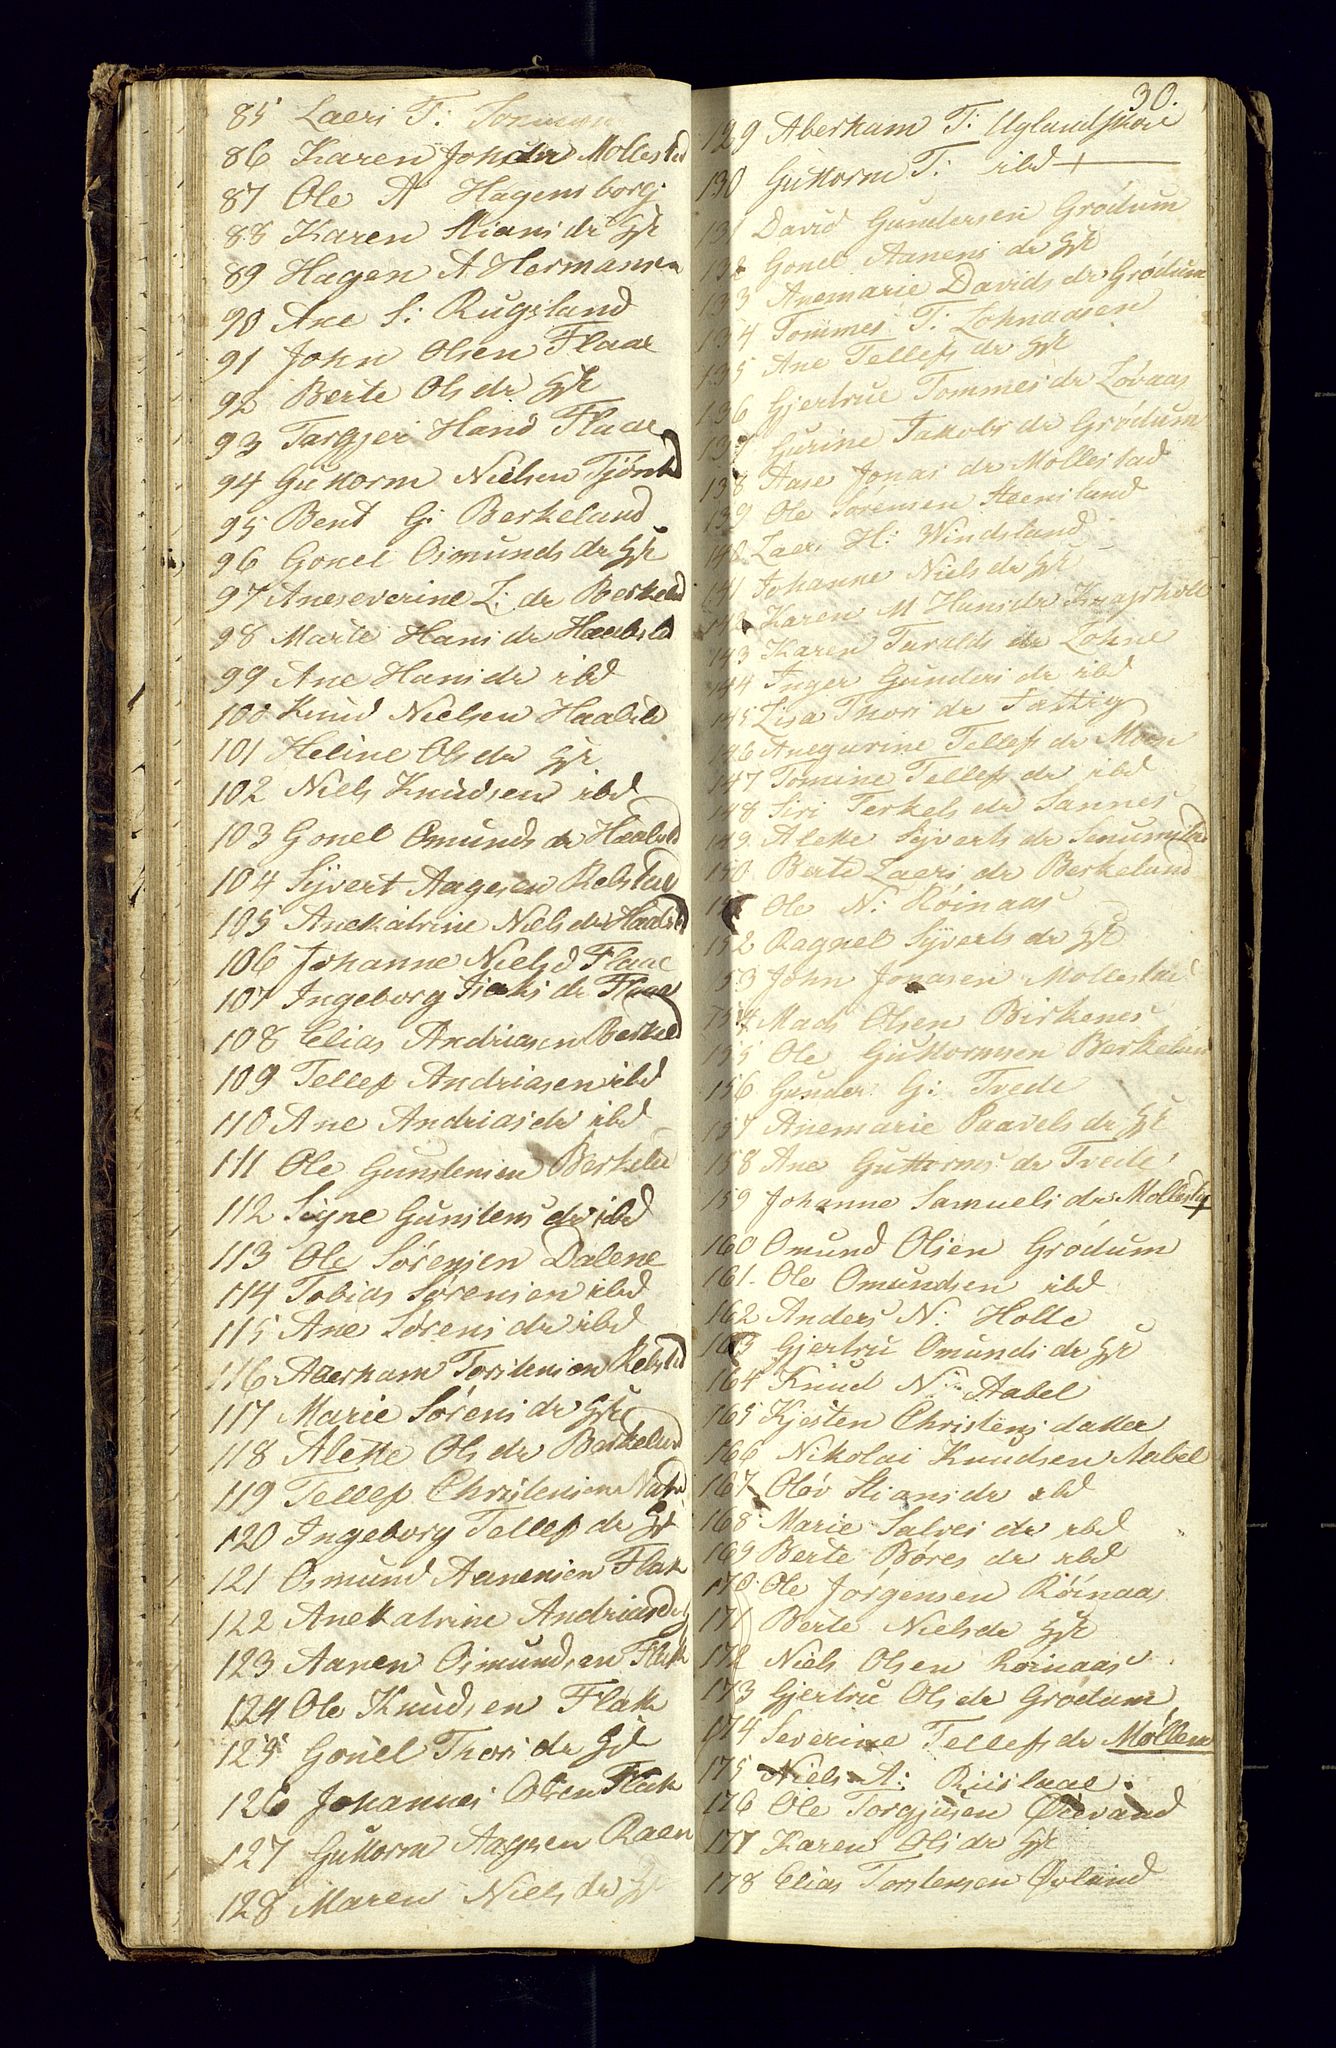 85 Laers T:
86 Karen Johndr Mollestad
87 Ole A Hagensborg
88 Karen Stians dr Hstr
89 Hagen A Hermansen
90 Ane S: Rugsland
91 John Olsen Flaae
92 Berte Ols dr Hstr
93 Targjer Hans Flaae
94 Guttorm Nielsen
95 Bent G: Berkeland
96 Gonel Osmunds dr Hstr
97 Aneseverine L: dr Berkeld
98 Marte Hans dr
99 Ane Hans dr ibd
100 Knud Nielsen
101 Heline Ols dr Hstr
102 Niels Knudsen ibd
103 Gonel Omunds dr
104 Syvert Aagesen Relstad
105 Anekatrine Niels dr
106 Johanne Niels d Flaae
107 Ingeborg Isaks dr Flaae
108 Elias Andriasen Berkeld
109 Tellef Andriasen ibd
110 Ane Andrias dr ibd
111 Ole Gunstensen Berkeld
112 Signe Gunstens dr ibd
113 Ole Sørensen Dalene
114 Tobias Sørensen ibd
115 Ane Sørens dr ibd
116 Aberham Torstensen Relstad
117 Marie Sørens dr Hstr
118 Alette Ols dr Berkeland
119 Tellef Christensen
120 Ingeborg Tellefs dr Hstr
121 Osmund Aanensen Flak
122 Anekatrine Andrias
123 Aanen Osmundsen Flak
124 Ole Knudsen Flak
125 Gonel Thors dr Hstr
126 Johannes Olsen Flak
127 Guttorm Aagesen Raen
128 Maren Niels dr Hstr
30.
129 Aberham T: Uglandsmoe
130 Guttorm T: ibd +
131 David Gundersen Grødum
132 Gonel Aanens dr Hstr
133 Anemarie Davids dr Grødum
134 Tommes T: Lohnaasen
135 Ane Tellefs dr Hstr
136 Gjertrue Tommes dr Løvaas
137 Gurine Jakobs dr Grødum
138 Aase Jonas dr Mollestad
139 Ole Sørensen Steensland
140 Laers H: Windsland
141 Johanne Niels dr Hstr
142 Karen M Hans dr
143 Karen Taralds dr Lohne
144 Inger Gunders dr ibd
145 Lisa Thors dr Fattig
146 Anegurine Tellefs dr Moen
147 Tomine Tellefs dr ibd
148 Siri Terkels dr Sannes
149 Alette Syverts dr Senumstad
150 Berte Laers dr Berkeland
151 Ole N: Røinaas
152 Ragnel Syverts dr Hstr
153 John Jonasen Mollestad
154 Mads Olsen Birkenes
155 Ole Guttormsen Berkeland
156 Gunder G: Tvede
157 Anemarie Paavels dr Hstr
158 Ane Guttorms dr Tvede
159 Johanne Samuels dr Mollestad
160 Omund Olsen Grødum
161 Ole Omundsen ibd
162 Anders N: Holte
163 Gjertru Omunds dr Hstr
164 Knud N: Aabel
165 Kjesten Christens datter
166 Nikolai Knudsen Aabel
167 Oløv Stians dr ibd
168 Marie Salves dr ibd
169 Berte Børes dr ibd
170 Ole Jørgensen Røinaas
171 Berte Niels dr Hstr
172 Niels Olsen Røinaas
173 Gjertru Ols dr Grødum
174 Severine Tellefs dr Møllem
175 Niels A: Riislaae
176 Ole Torgjusen Øvevand
177 Karen Ols dr Hstr
178 Elias Torstensen Øvland